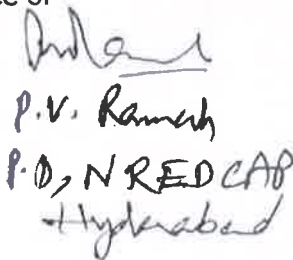 of
P.V. Ramesh
P.D, NREDCAP
Hyderabad